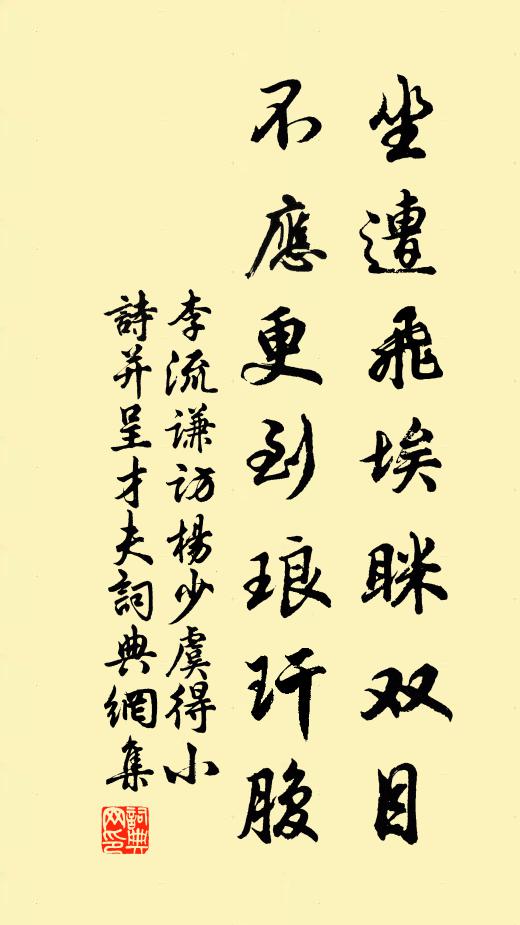 坐遭飛埃眯双目
不應更到琅玕腹
李流谦訪楊少虞得小
詩并呈才夫詞典網集
詞典网印